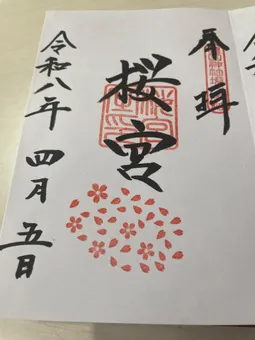 奉拝
桜宮
令和八年 四月五日